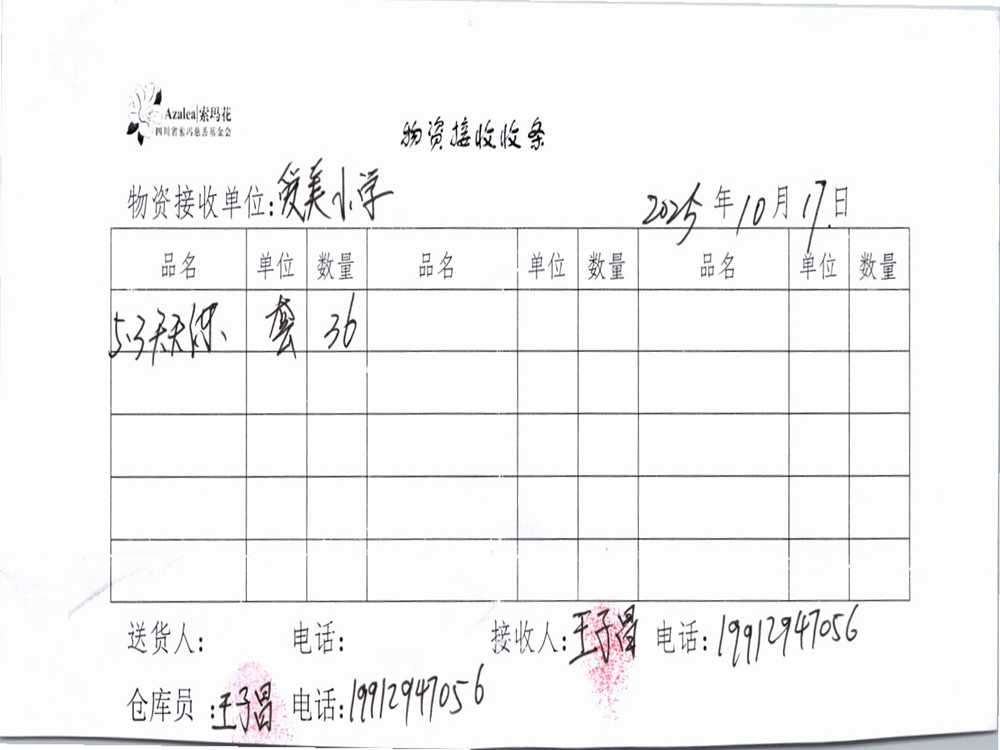 Azalea|索玛花
四川省索玛慈善基金会
物资接收收条
物资接收单位:爱美小学 2025年10月17日
品名 单位 数量 品名 单位 数量 品名 单位 数量
5.3天天练 套 36
送货人: 电话: 接收人:王子昌 电话:19912947056
仓库员:王子昌 电话:19912947056